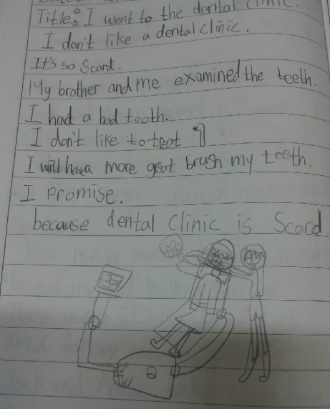 Title: I went to the dental clinic.
I don't like a dental clinic.
It's so Scard.
My brother and me examined the teeth.
I had a bad tooth.
I don't like to treat
I will have more great brush my teeth.
I promise.
because dental clinic is Scard